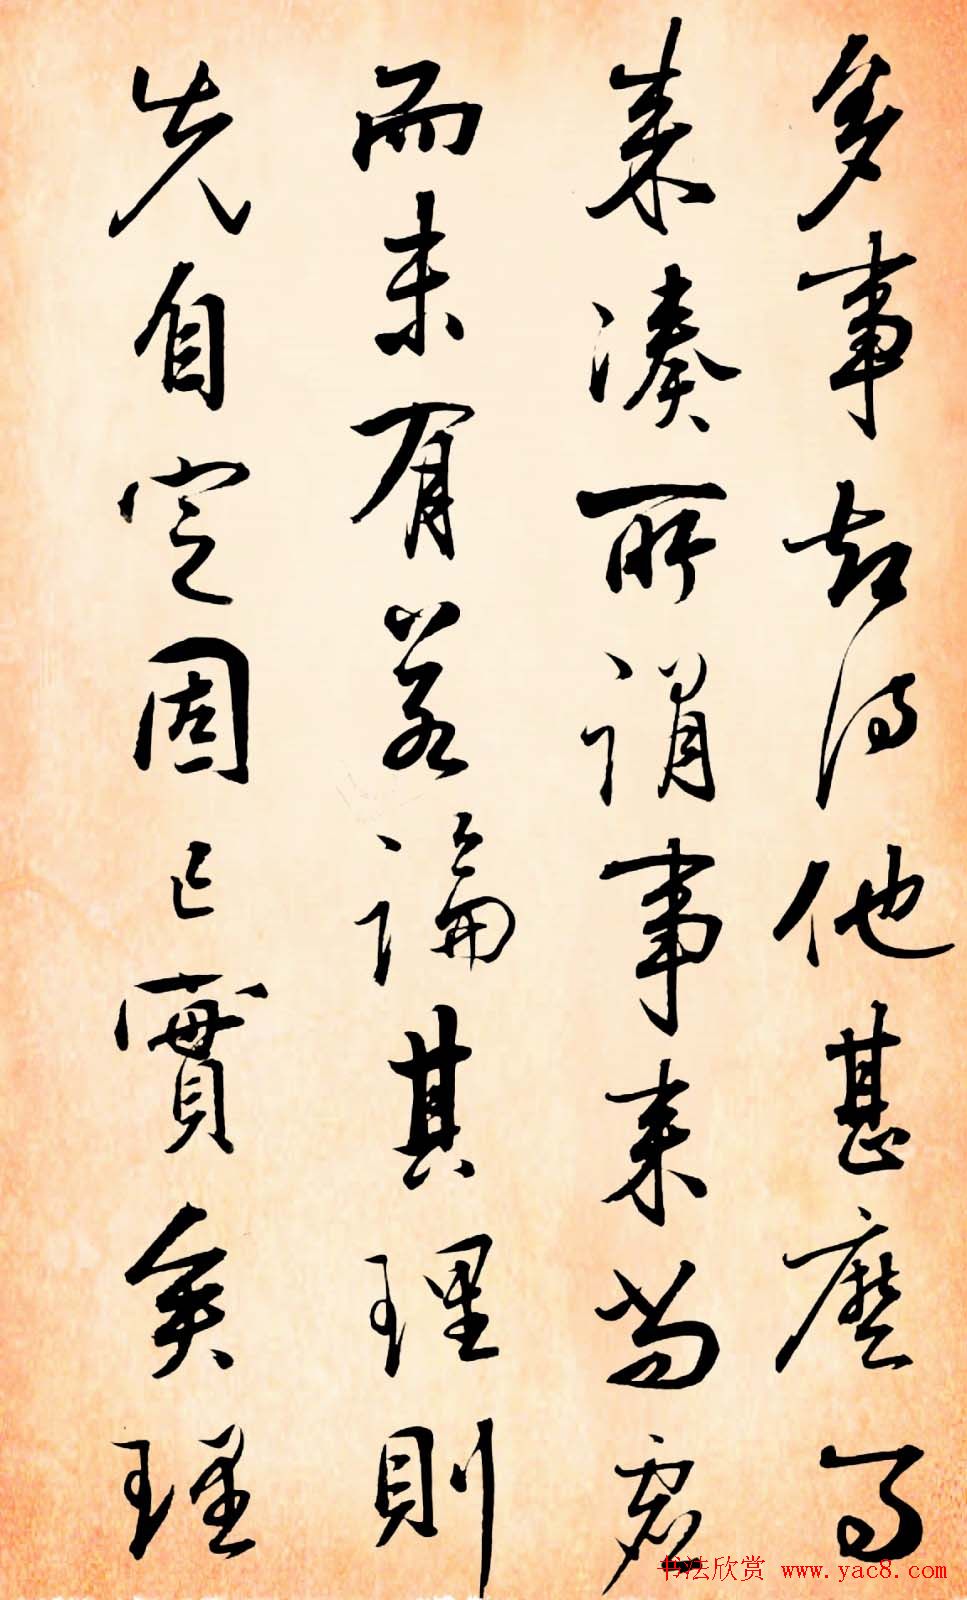 多事却得他甚麼事
来湊所謂事来尚虛
而未有若論其理則
先自定固已實矣理
书法欣赏 www.yac8.com